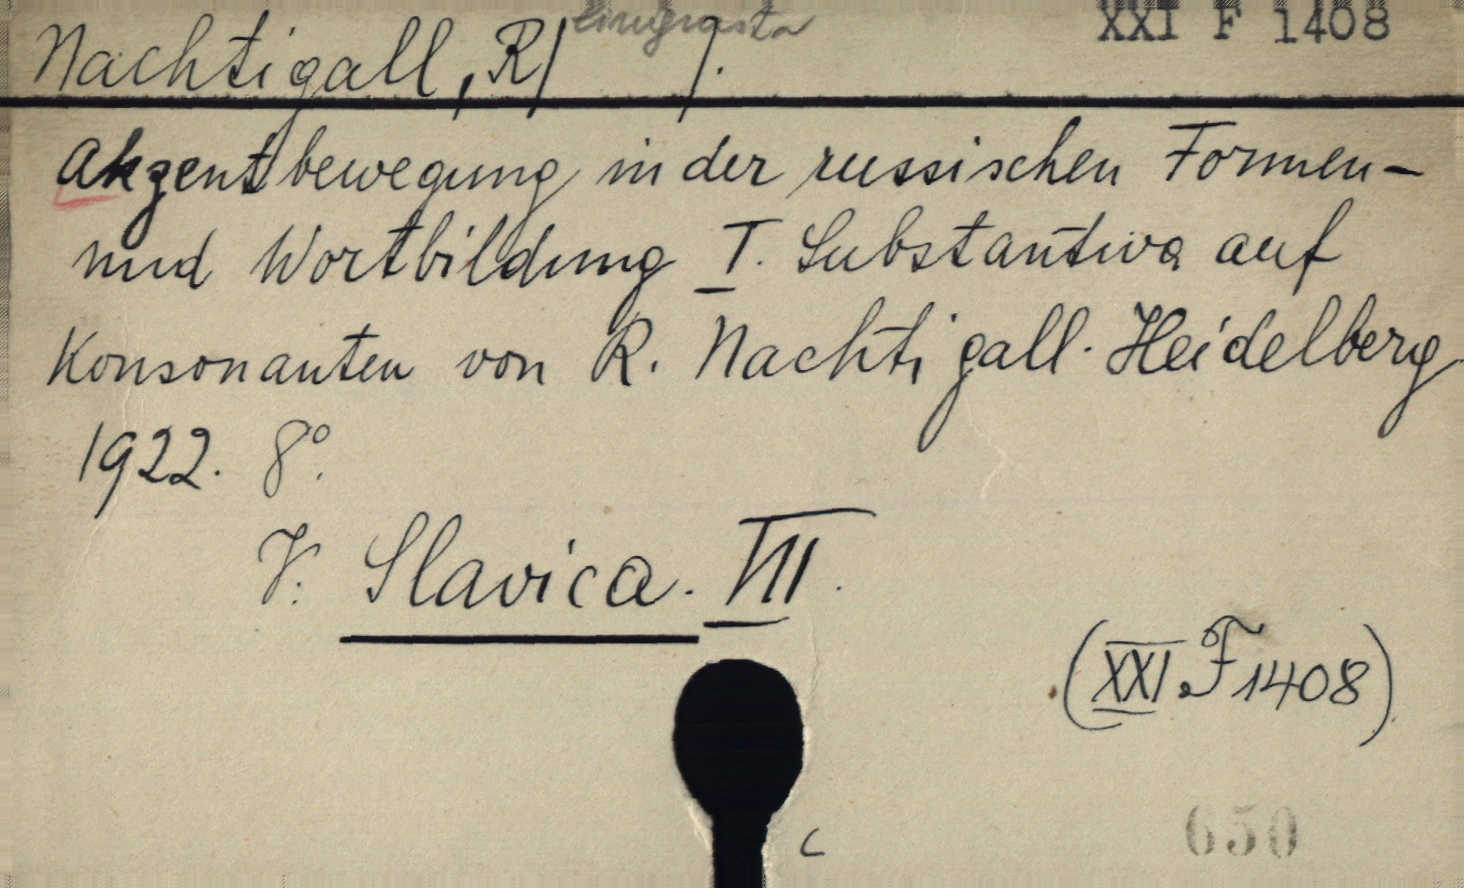 XXI F 1408
Nachtigall, R/ /.
Akzentbewegung in der russischen Formen-
und Wortbildung I. Substantiva auf
Konsonanten von R. Nachtigall. Heidelberg
1922. 8°.
V. Slavica. VII.
(XXI. F 1408)
c
650